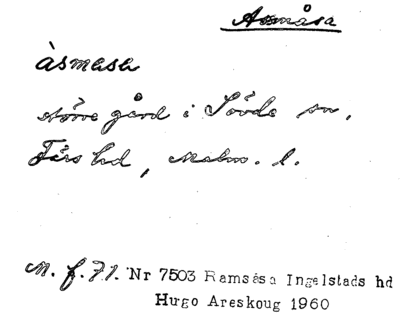 Asmåsa
àsmasa
större gård i Sövde sn,
Färs hd, Malm. l.
M. f. 71. Nr 7503 Ramsåsa Ingelstads hd
Hugo Areskoug 1960